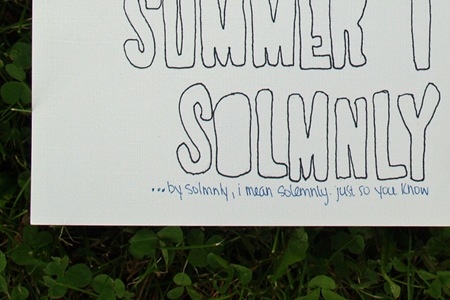 SUMMER I
SOLMNLY
...by solmnly, i mean solemnly. just so you know